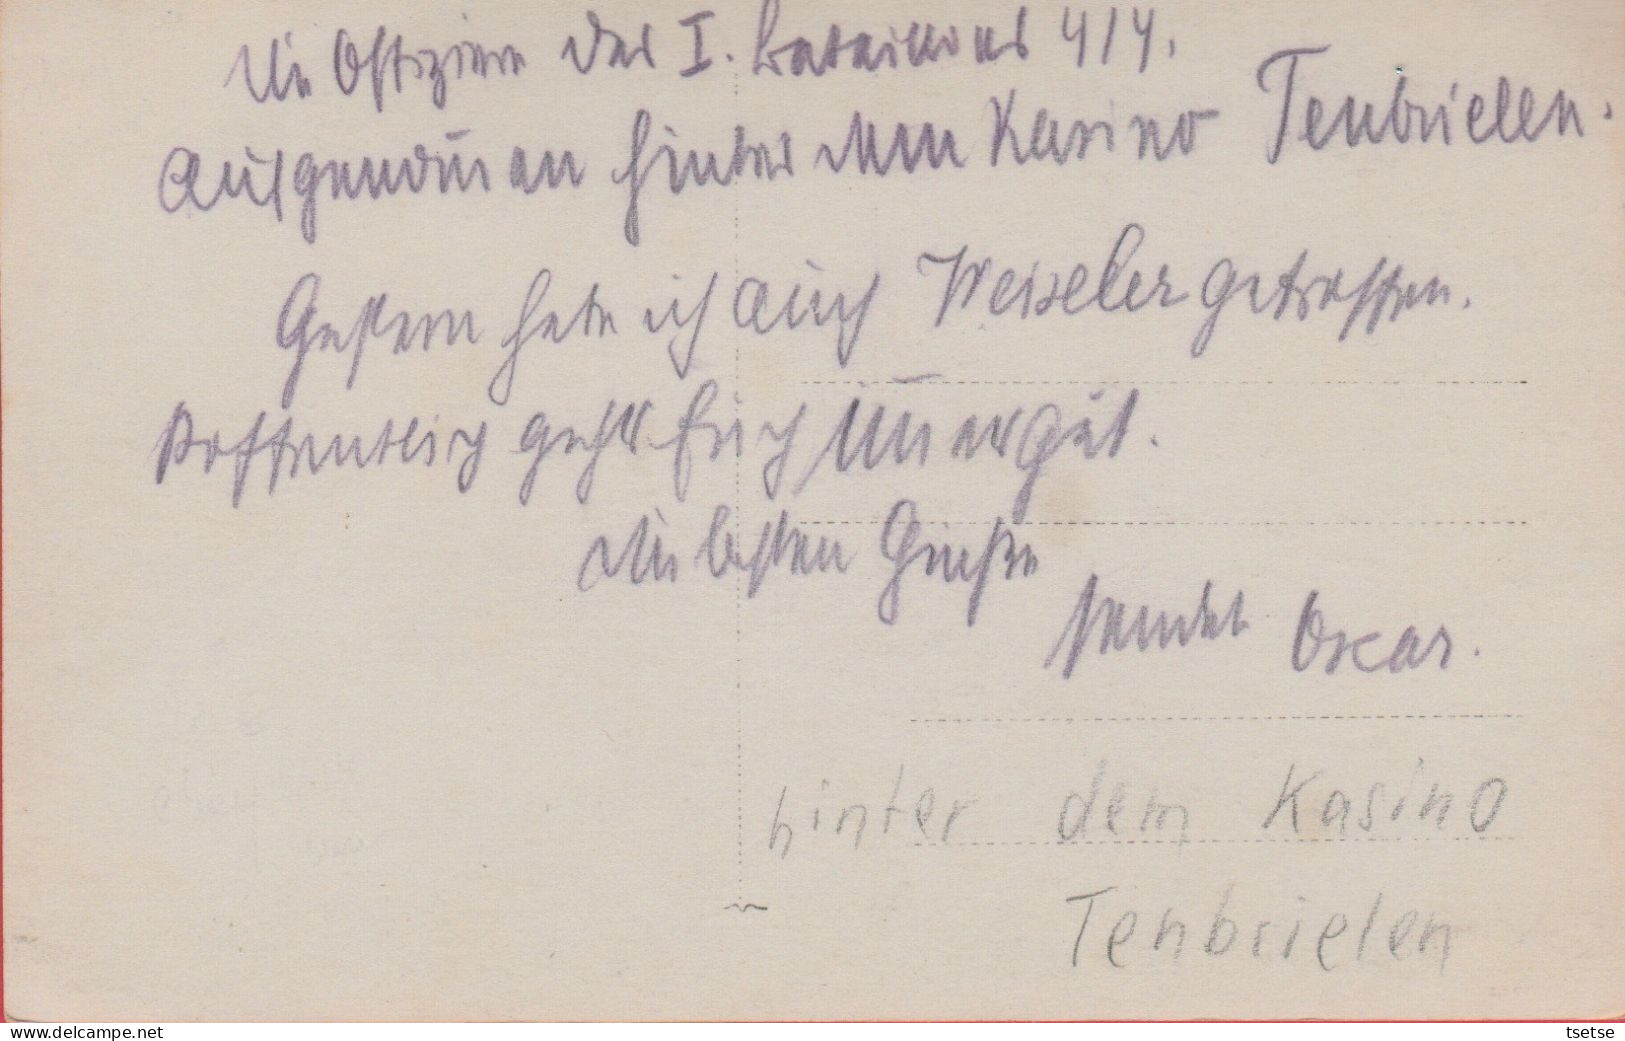 Die Offiziere des I. Bataillons 414.
Aufgenommen hinter dem Kasino Tenbrielen.
Gestern habe ich auch Weiseler getroffen.
Hoffentlich geht Euch immer gut.
Die besten Grüße
sendet Oskar.
hinter dem Kasino
Tenbrielen
www.delcampe.net
tsetse